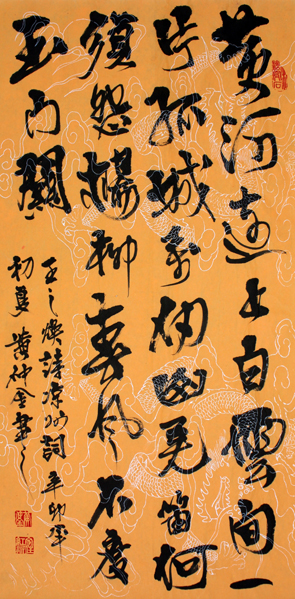 黄河遠上白雲間一
片孤城万仞山羌笛何
須怨楊柳春風不度
玉門關
王之渙詩涼州詞辛卯年
初夏黄仲金書之